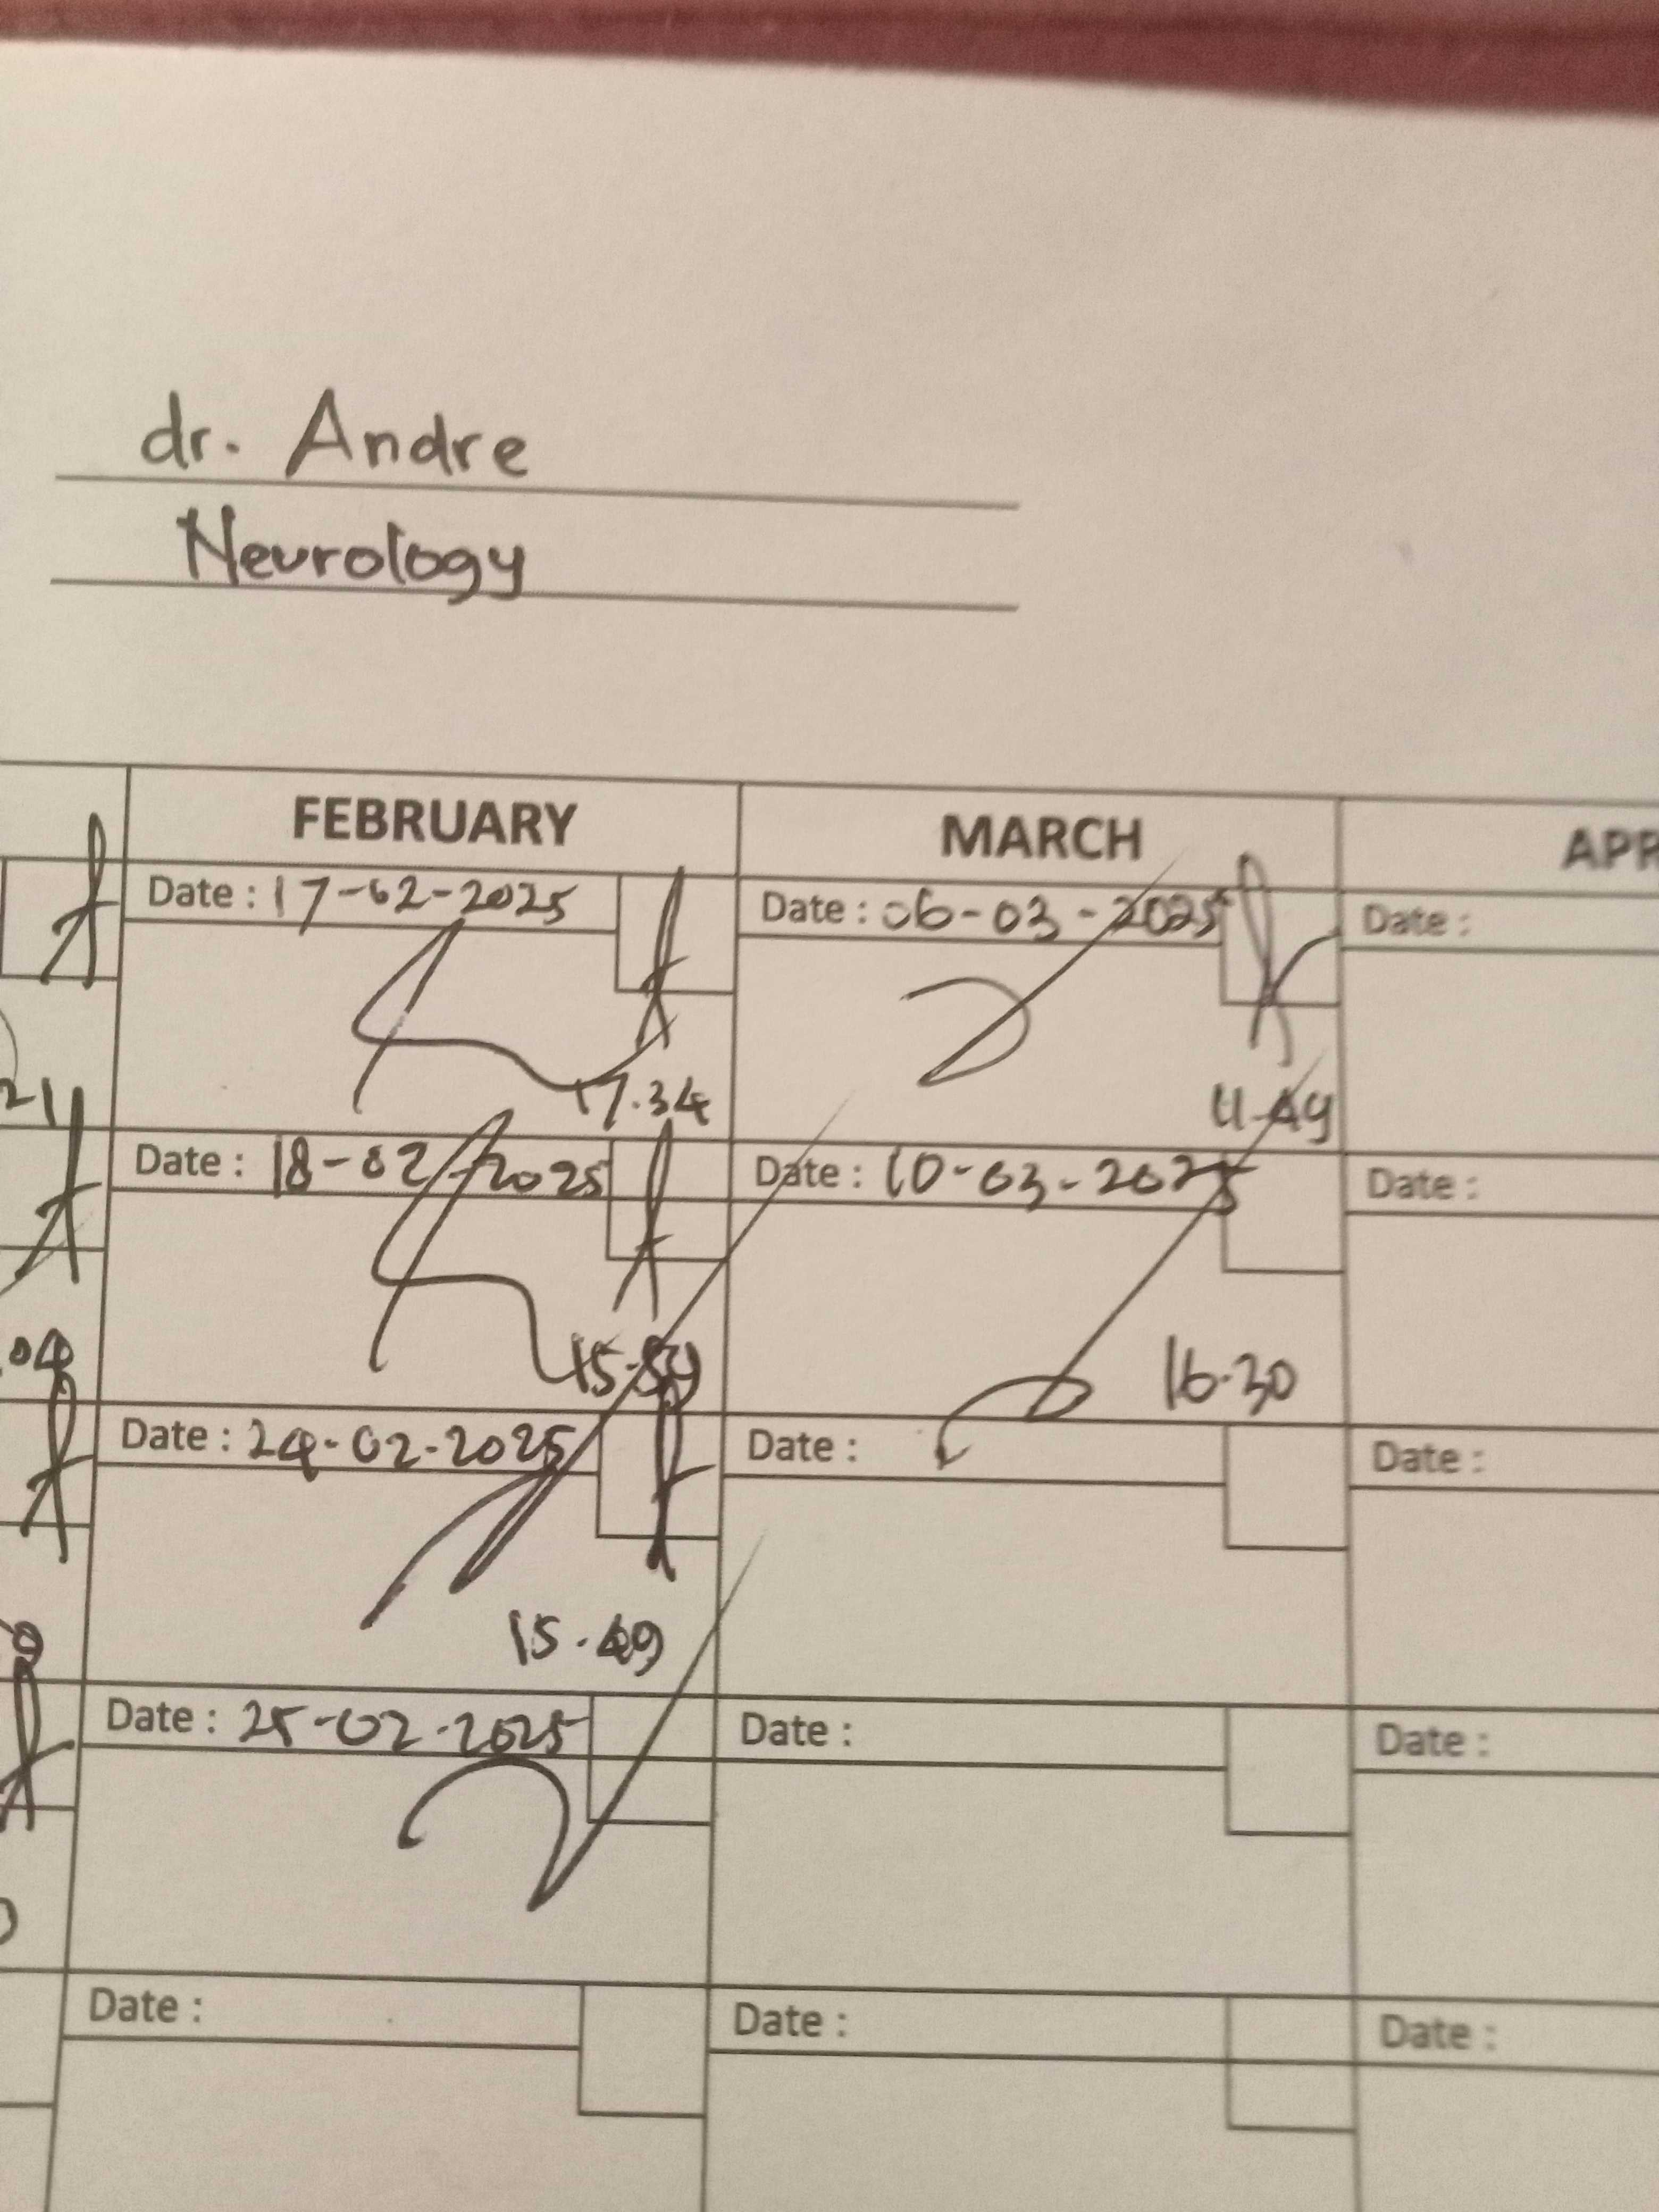 dr. Andre
Neurology
FEBRUARY MARCH
Date : 17-02-2025 Date : 06-03-2025 Date :
21 17.34 11.49
Date : 18-02-2025 Date : 10-03-2025 Date :
15.54 16.30
Date : 24-02-2025 Date : Date :
15.49
Date : 25-02-2025 Date : Date :
Date : Date : Date :